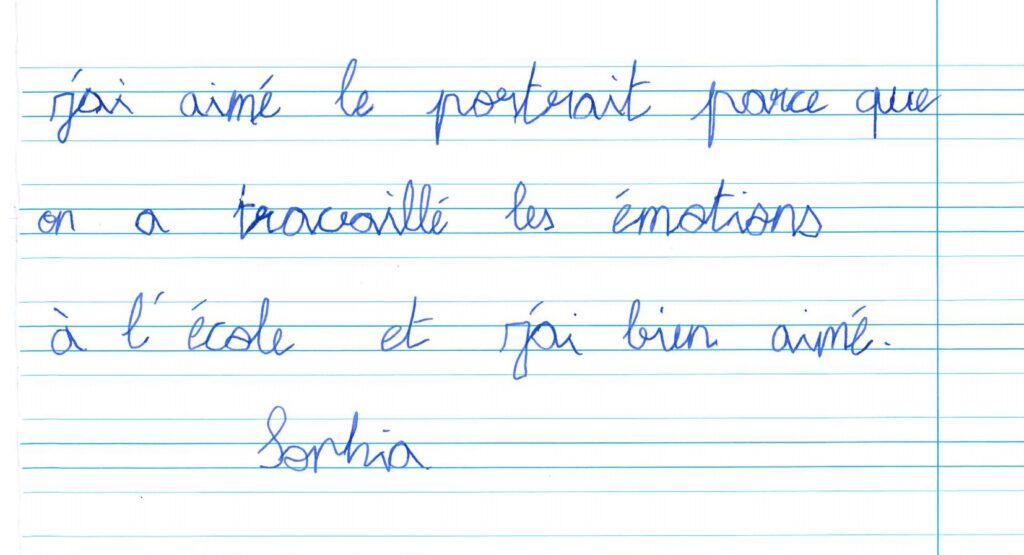 j'ai aimé le portrait parce que
on a travaillé les émotions
à l'école et j'ai bien aimé.
Sophia